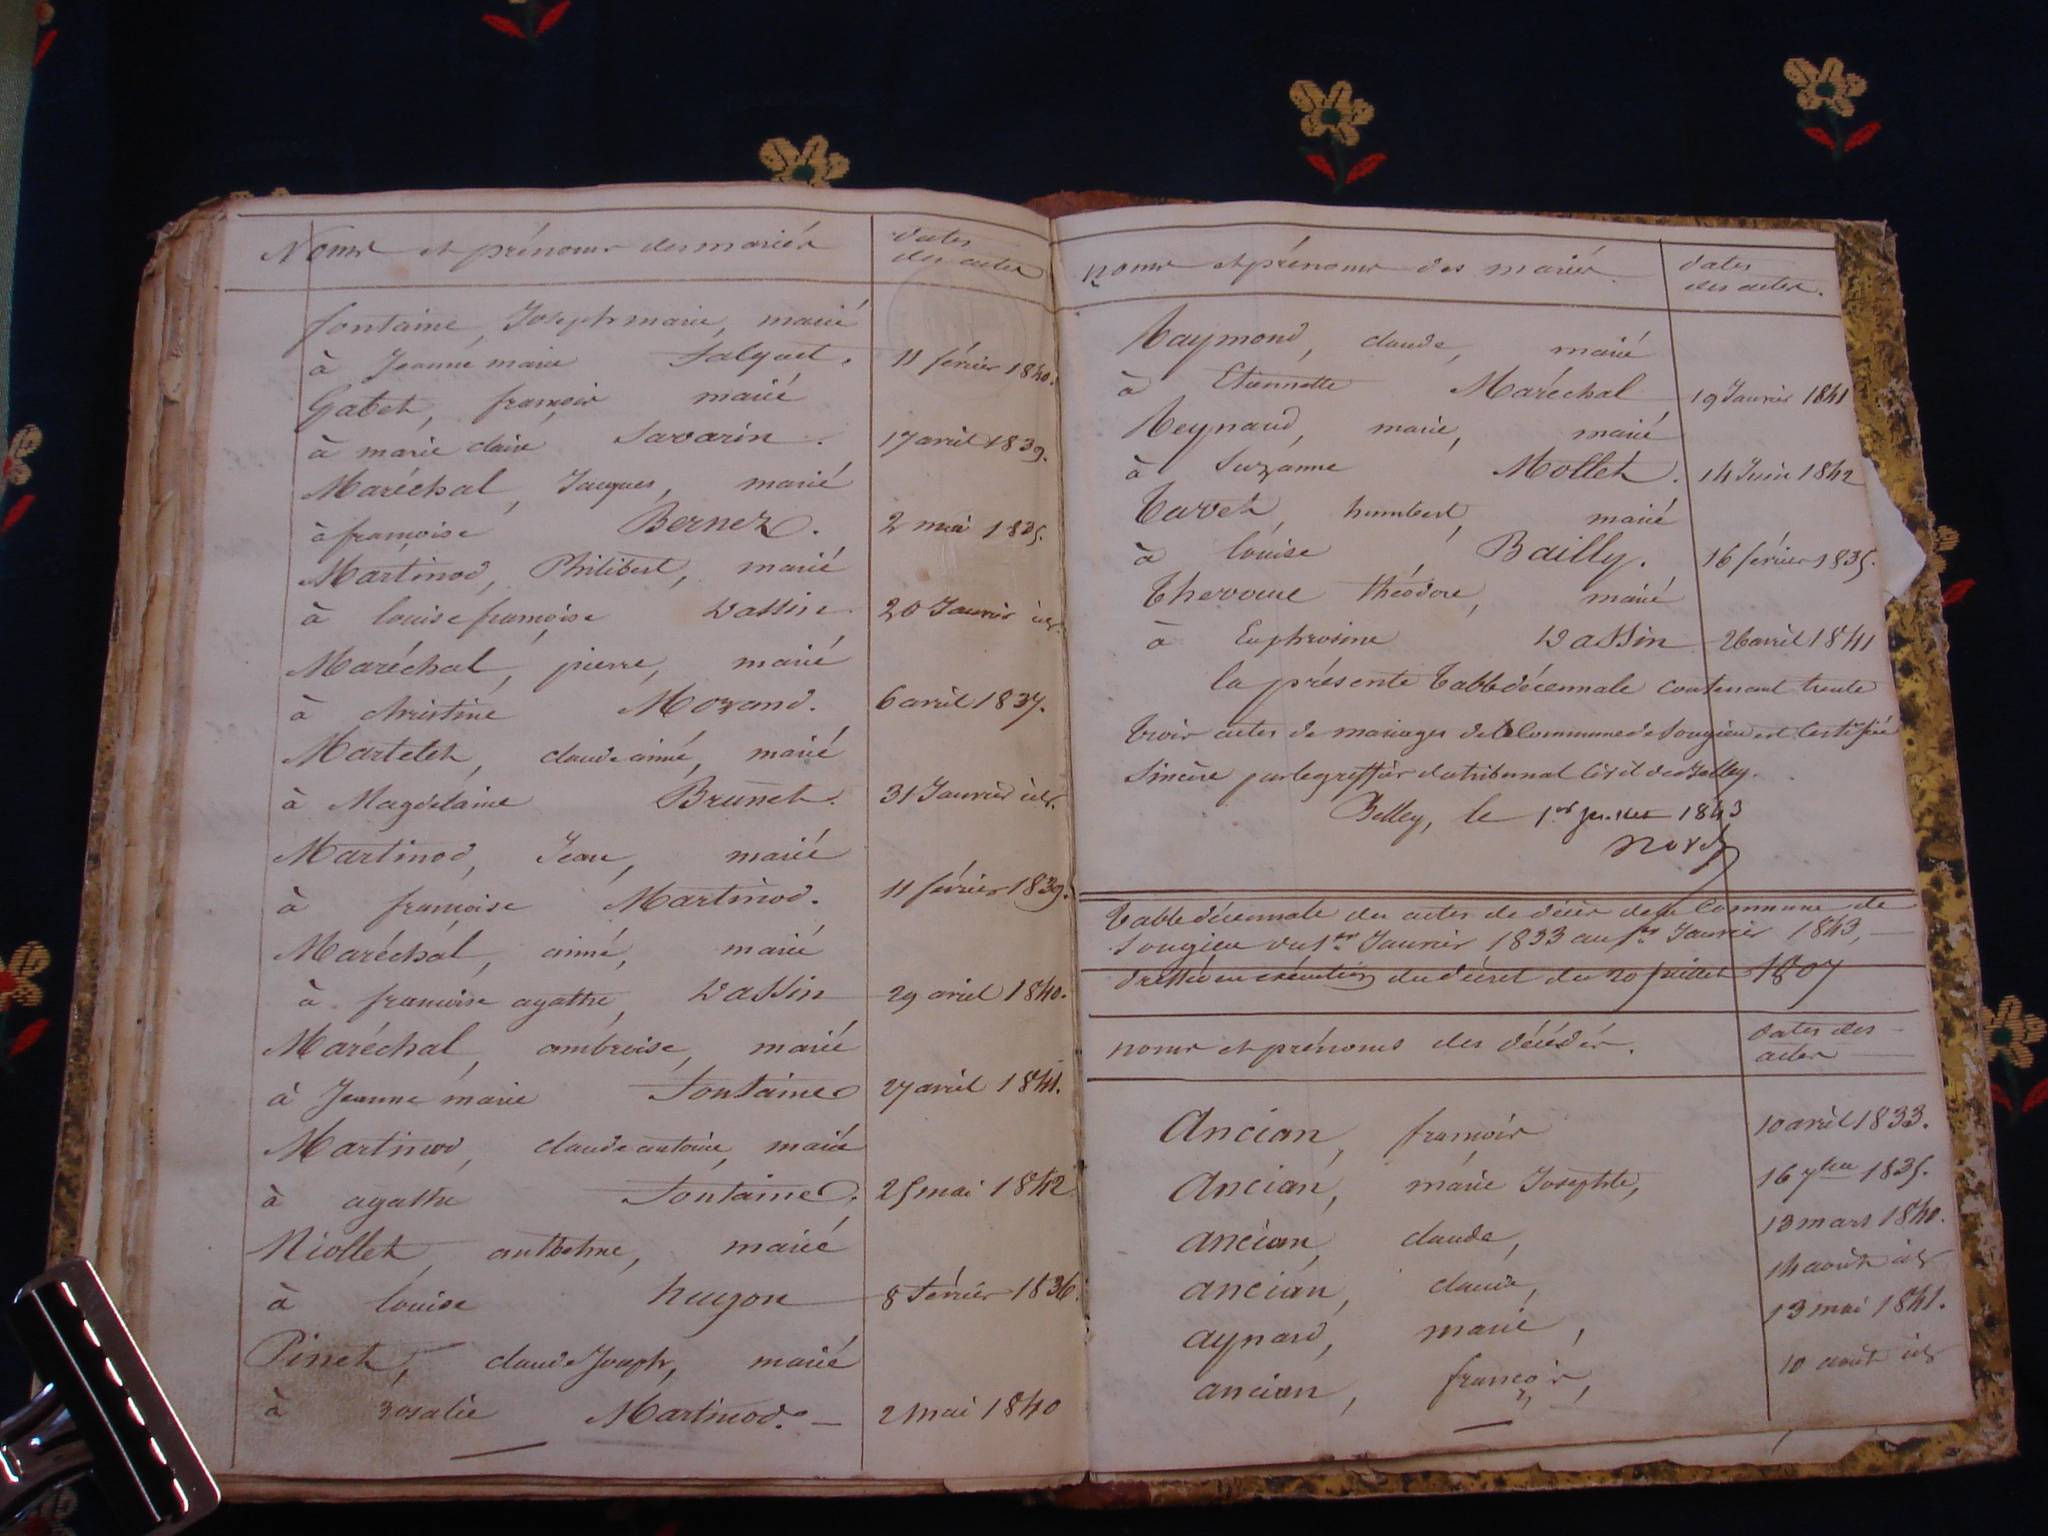 Noms et prénoms des mariés
dates
des actes
fontaine, Joseph marie, marié
à Jeanne marie Falquet. 11 février 1840.
Gabet, françois marié
à marie claire Savarin. 17 avril 1839.
Maréchal, Jacques, marié
à françoise Bernez. 2 mai 1835.
Martinod, Philibert, marié
à louise françoise Vassin. 20 Janvier id.
Maréchal, pierre, marié
à christine Morand. 6 avril 1837.
Martelet, claude aimé, marié
à Magdelaine Brunet. 31 Janvier id.
Martinod, Jean, marié
à françoise Martinod. 11 février 1839.
Maréchal, aimé, marié
à françoise agathe, Vassin 29 avril 1840.
Maréchal, ambroise, marié
à Jeanne marie Fontaine 27 avril 1841.
Martinod, claude antoine, marié
à agathe Fontaine. 25 mai 1842
Niollet, anthelme, marié
à louise hugon 8 février 1836.
Pinet, claude Joseph, marié
à rosalie Martinod. 2 mai 1840
noms et prénoms des mariés
dates
des actes.
Raymond, claude, marié
à Etiennette Maréchal 19 Janvier 1841
Reynaud, marie, marié
à Suzanne Mollet. 14 Juin 1842
Tavet, humbert, marié
à louise Bailly. 16 février 1835.
Thevoux théodore, marié
à Euphrosine Vassin 26 avril 1841
la présente table décennale contenant trente
trois actes de mariages de la Commune de Songieu est certifiée
Sincère par le greffier du tribunal Civil de Belley.
Belley, le 1er juillet 1843
Table décennale des actes de décès de la Commune de
Songieu du 1er Janvier 1833 au 1er Janvier 1843,
dressée en exécution du décret du 20 juillet 1807
noms et prénoms des décédés.
dates des
actes
Ancian, françois 10 avril 1833.
Ancian, marie Josephte, 16 7bre 1835.
ancian, claude, 13 mars 1840.
ancian, claude, 14 août id
aynard, marie, 13 mai 1841.
ancian, françois, 10 août id